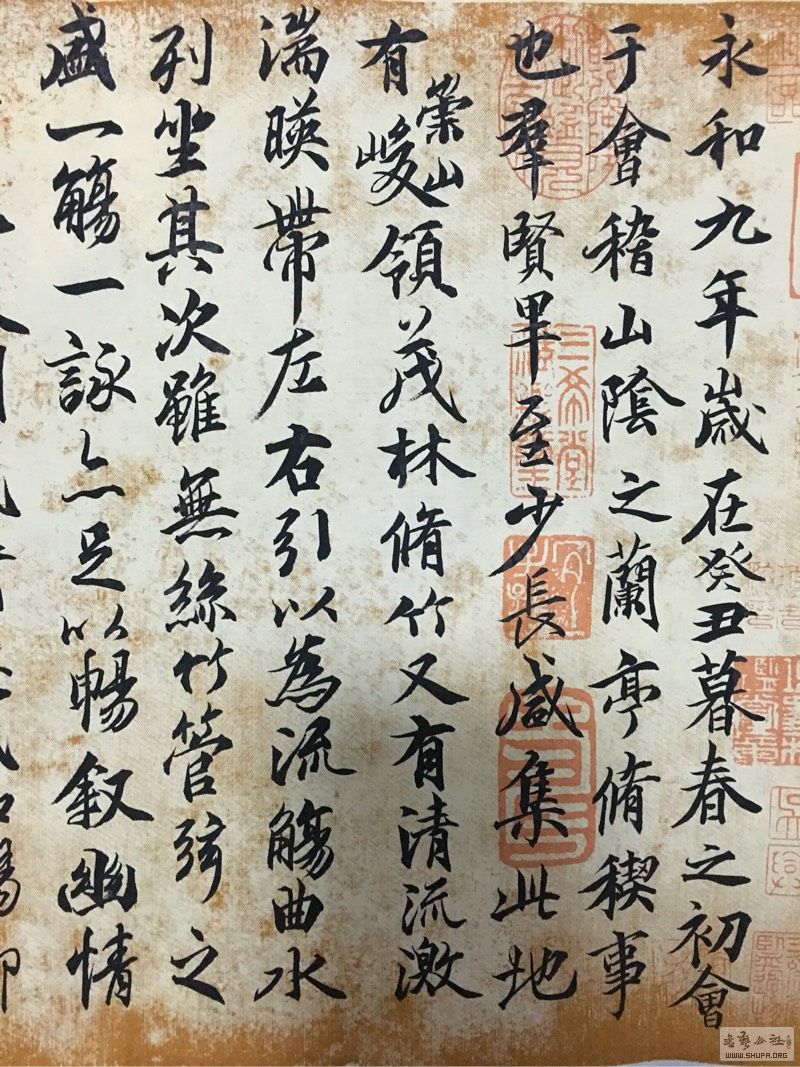 永和九年歲在癸丑暮春之初會
于會稽山陰之蘭亭脩稧事
也羣賢畢至少長咸集此地
有崇山峻領茂林脩竹又有清流激
湍暎帶左右引以為流觴曲水
列坐其次雖無絲竹管弦之
盛一觴一詠亦足以暢叙幽情
三希堂
書藝公社
WWW.SHUFA.ORG